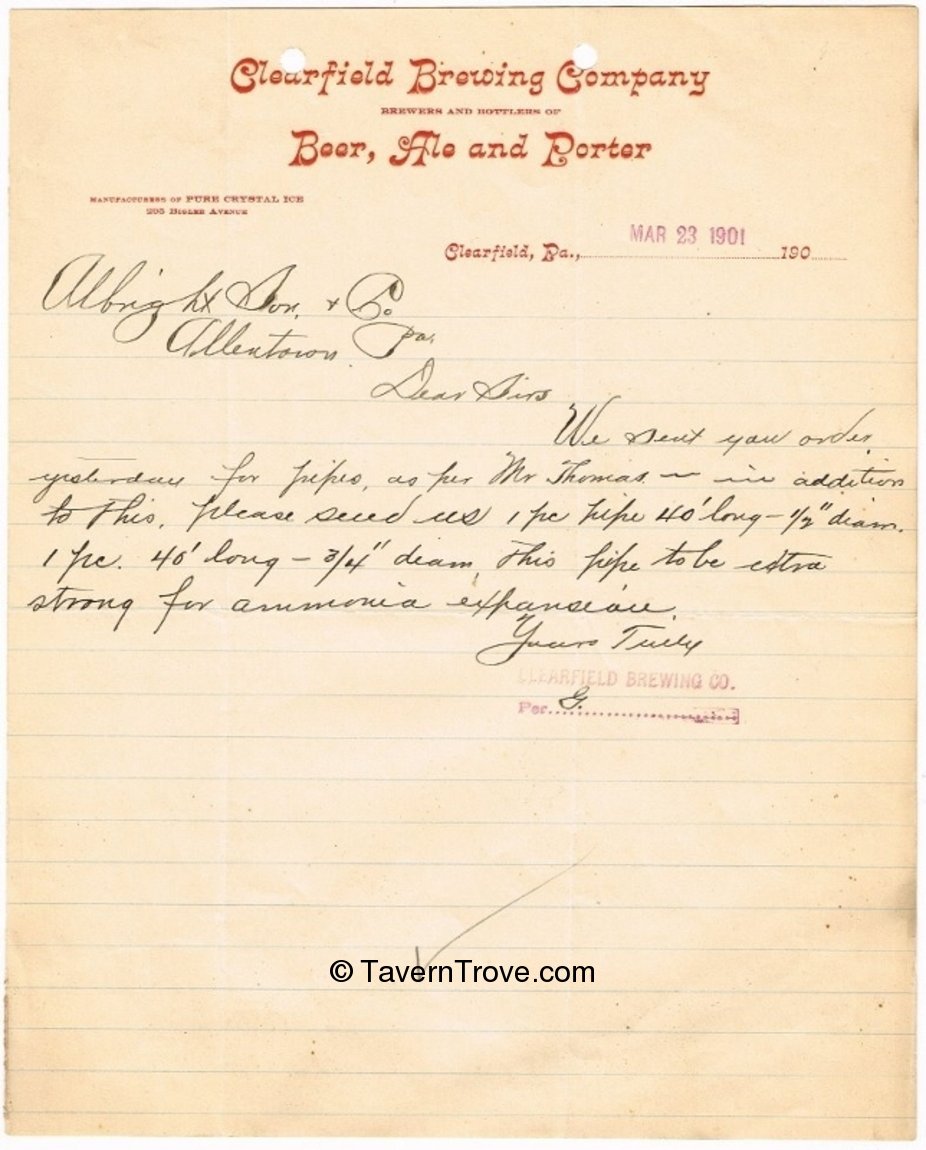 Clearfield Brewing Company
BREWERS AND BOTTLERS OF
Beer, Ale and Porter
MANUFACTURERS OF PURE CRYSTAL ICE
205 BIGLER AVENUE
MAR 23 1901
Clearfield, Pa., 190
Albright Son, & Co
Allentown Pa.
Dear Sirs
We sent you order
yesterday for pipes, as per Mr Thomas — in addition
to this, please send us 1 pc pipe 40' long – 1/2" diam.
1 pc. 40' long – 3/4" diam, This pipe to be extra
strong for ammonia expansion.
Yours Truly
CLEARFIELD BREWING CO.
Per. G.
© TavernTrove.com